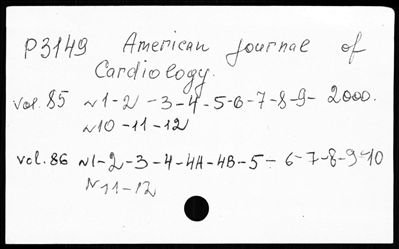 P3149 American Journal of
Cardiology.
vol. 85 N1-2-3-4-5-6-7-8-9- 2000.
N10-11-12
vol. 86 N1-2-3-4-4A-4B-5-6-7-8-9-10
N11-12